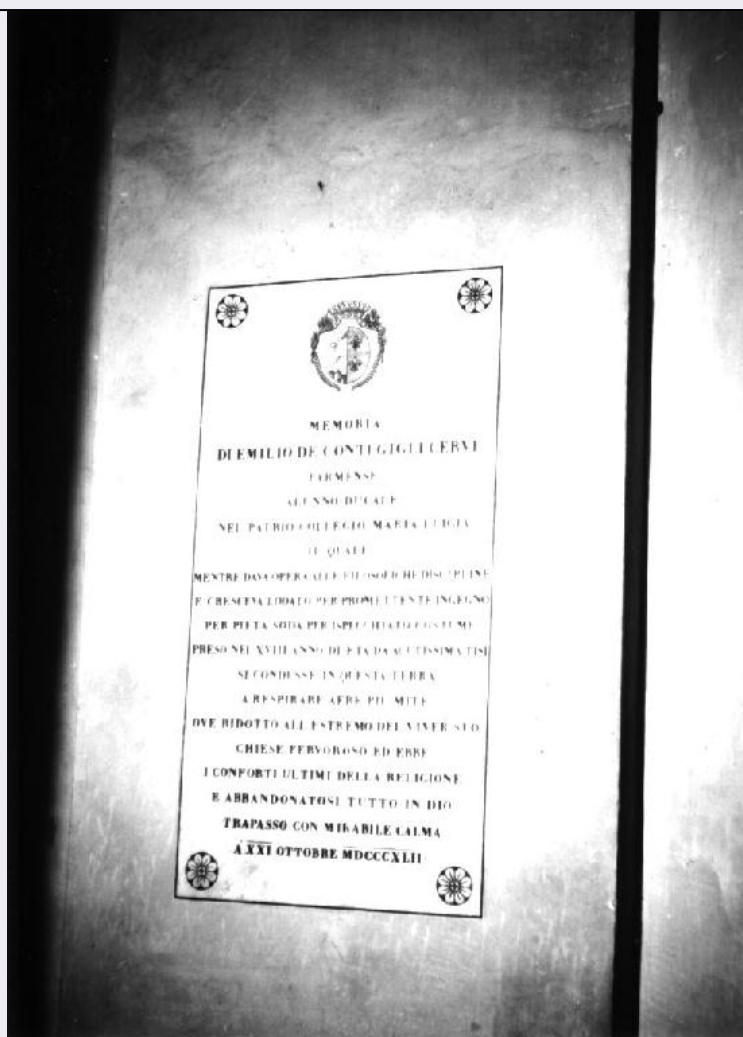 MEMORIA
DI EMILIO DE CONTI GIGLI CERVI
PARMENSE
ALUNNO DUCALE
NEL PATRIO COLLEGIO MARIA LUIGIA
IL QUALE
MENTRE DAVA OPERA ALLE FILOSOFICHE DISCIPLINE
E CRESCEVA LODATO PER PROMETTENTE INGEGNO
PER PIETA SODA PER ISPECCHIATO COSTUME
PRESO NEL XVIII ANNO DI ETA DA ACUTISSIMA TISI
SI CONDUSSE IN QUESTA TERRA
A RESPIRARE AERE PIU MITE
OVE RIDOTTO ALL ESTREMO DEL VIVER SUO
CHIESE FERVOROSO ED EBBE
I CONFORTI ULTIMI DELLA RELIGIONE
E ABBANDONATOSI TUTTO IN DIO
TRAPASSO CON MIRABILE CALMA
A XXI OTTOBRE MDCCCXLII